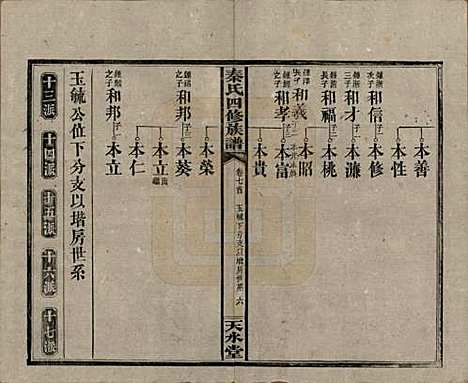 本善
本性
和信 本修
鍾淑次子
和才 本濂
鍾淑三子
和福 本桃
鍾澥長子
和義 本昭
鍾澤之子
和孝 本富
本貴
秦氏四修族譜
卷七首 玉毓下分支以堦房世系 六
天水堂
本榮
和邦 本葵
之子
本立
本仁
和邦 本立
之子
玉毓公位下分支以堦房世系
十三派 十四派 十五派 十六派 十七派